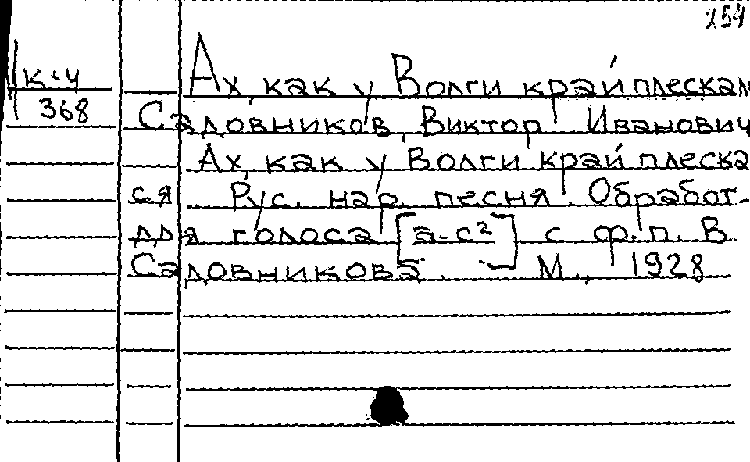 254
к-ч Ах, как у Волги край плескал
368 Садовников, Виктор Иванович
Ах, как у Волги край плеска
ся. Рус. нар. песня. Обработ-
для голоса [a-c²] с ф.п. В.
Садовникова. - М., 1928